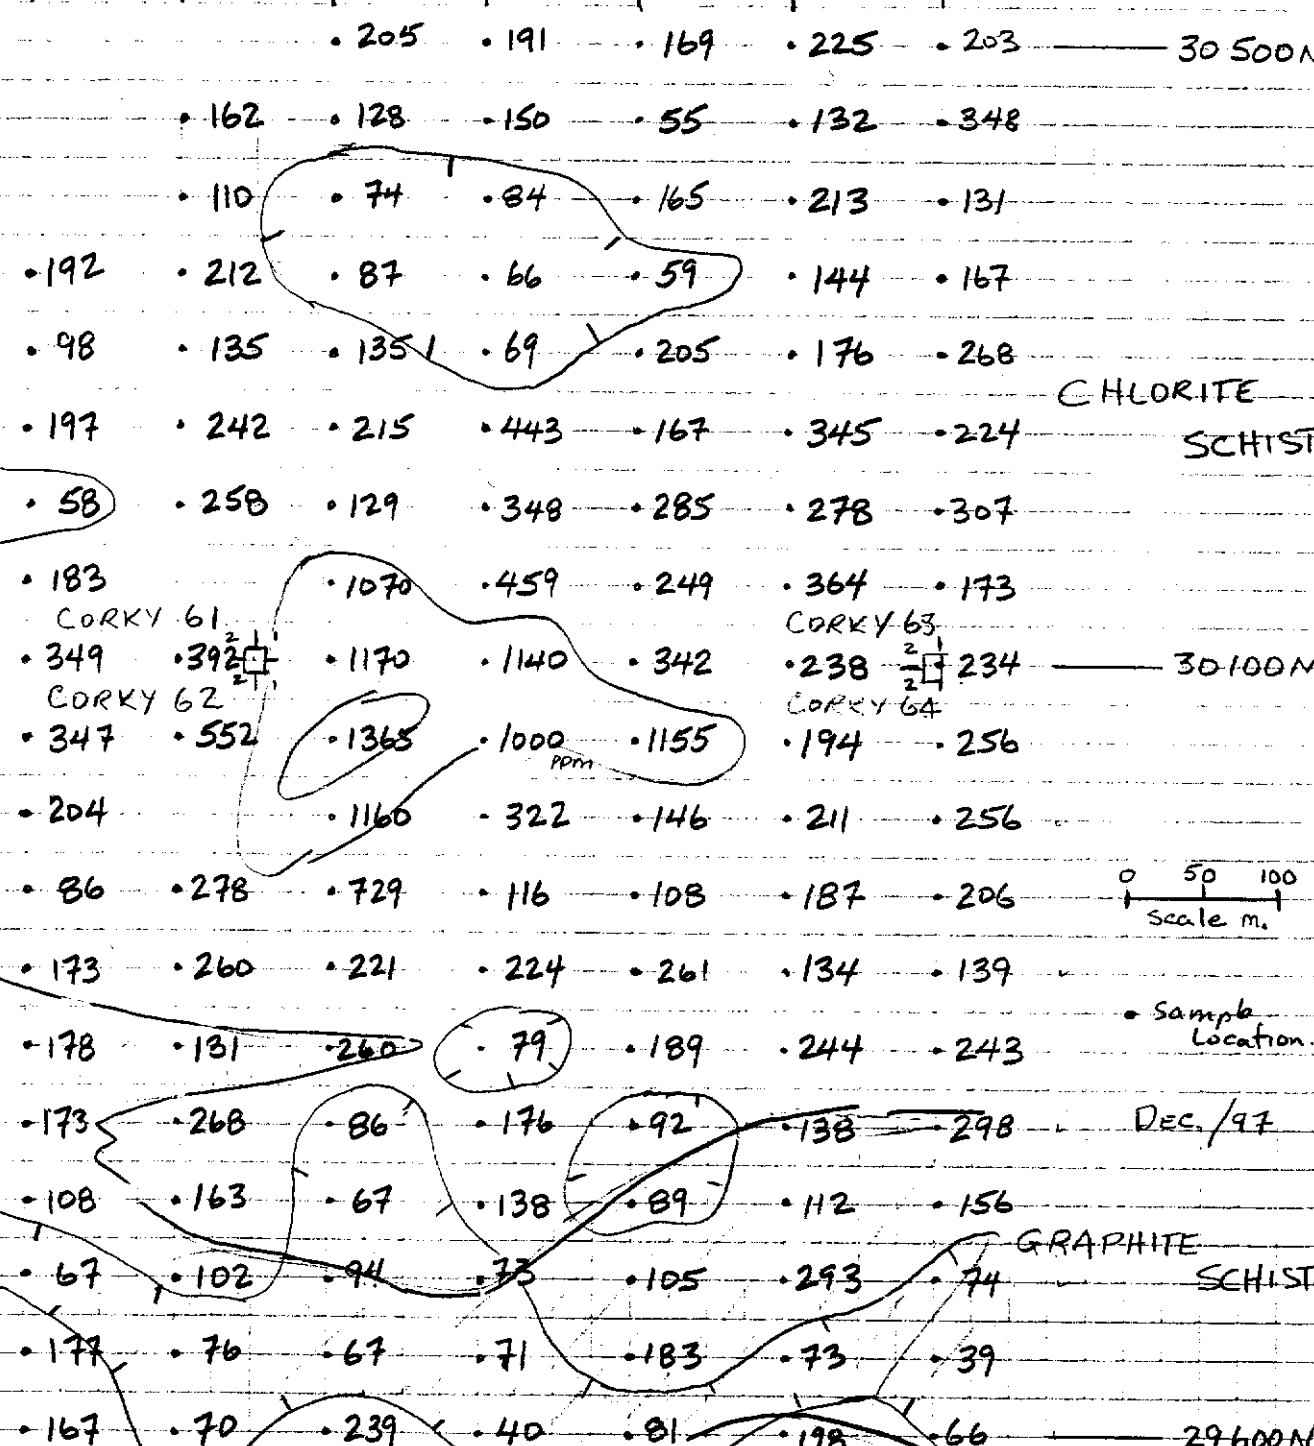 • 205 • 191 • 169 • 225 • 203 30 500 N
• 162 • 128 • 150 • 55 • 132 • 348
• 110 • 74 • 84 • 165 • 213 • 131
• 192 • 212 • 87 • 66 • 59 • 144 • 167
• 98 • 135 • 135 • 69 • 205 • 176 • 268
CHLORITE
• 197 • 242 • 215 • 443 • 167 • 345 • 224
SCHIST
• 58 • 258 • 129 • 348 • 285 • 278 • 307
• 183 • 1070 • 459 • 249 • 364 • 173
CORKY 61 CORKY 63
2 1 2 1
• 349 • 392 • 1170 • 1140 • 342 • 238 234 30 100 N
2 1 2
CORKY 62 CORKY 64
• 347 • 552 • 1365 • 1000 • 1155 • 194 • 256
ppm
• 204 • 1160 • 322 • 146 • 211 • 256
0 50 100
• 86 • 278 • 729 • 116 • 108 • 187 • 206
Scale m.
• 173 • 260 • 221 • 224 • 261 • 134 • 139
• Sample
Location.
• 178 • 131 • 260 • 79 • 189 • 244 • 243
• 173 • 268 • 86 • 176 • 92 • 138 • 298 DEC./97
• 108 • 163 • 67 • 138 • 89 • 112 • 156
GRAPHITE
• 67 • 102 • 94 • 73 • 105 • 293 • 74 SCHIST
• 177 • 76 • 67 • 71 • 183 • 73 • 39
• 167 • 70 • 239 • 40 • 81 • 198 • 66 29 600 N